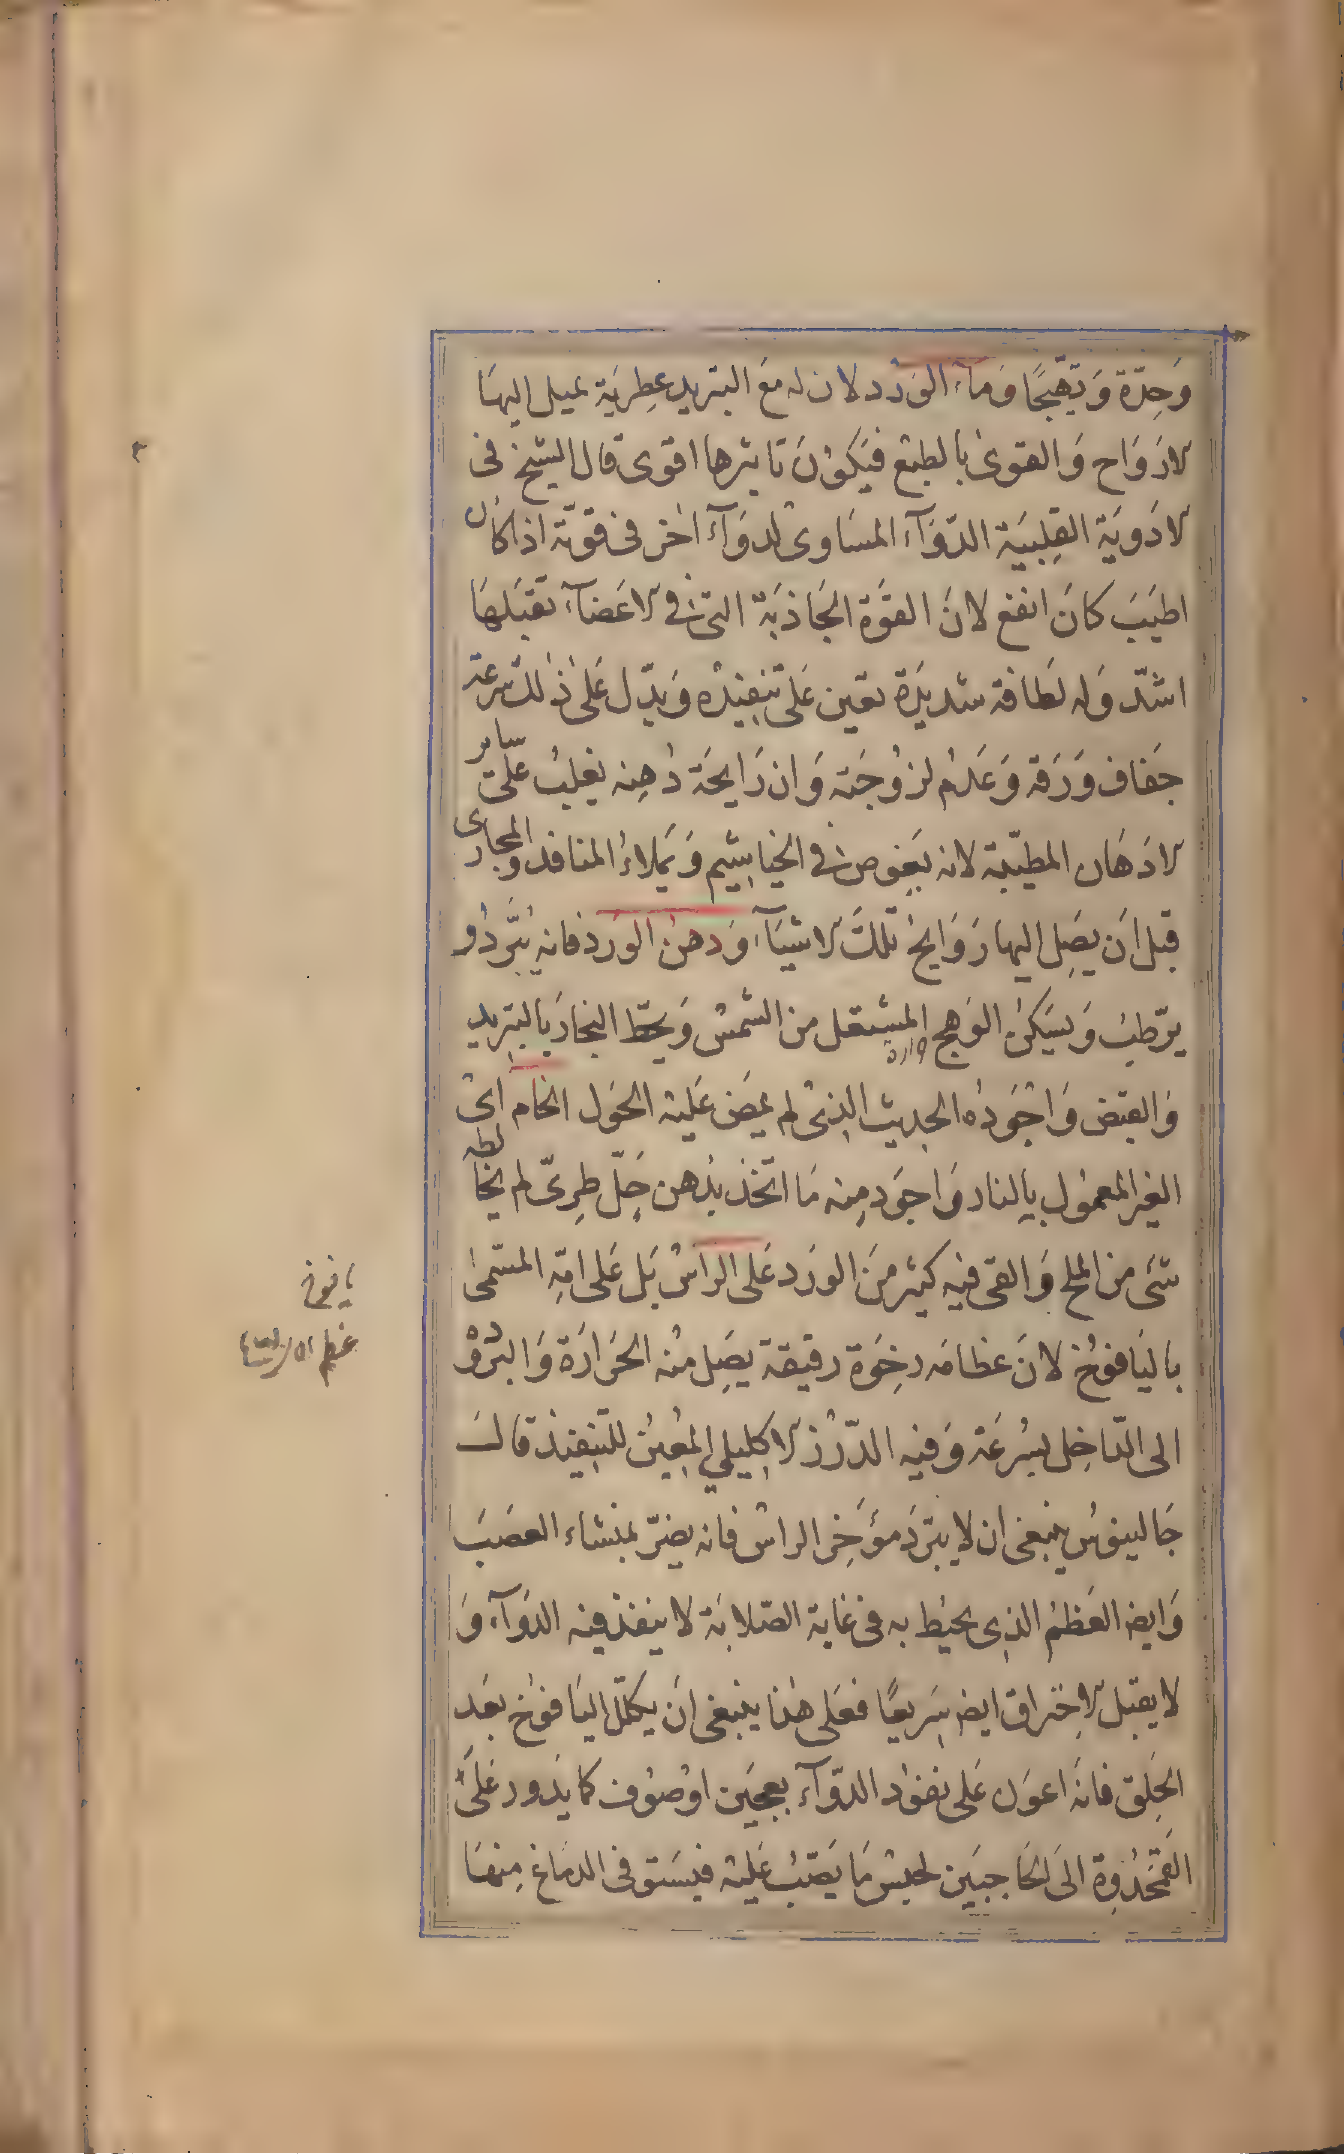 وَحِدّة وَتهيّجًا وَمآء الوَرْد لان له مَع التبريد عِطريَة تميل اليهَا
الارَوَاح وَالقوىٰ بالطبْع فيَكوْنَ تاثيرها اقوى قال الشيخ فى
الادَويَة القِلبيَة الدّوَآء المسَاوى لدوَآءَ اٰخر فى قوّته اذا كان
اطيَبَ كانَ انفع لانَ القوَّة الجَاذبَة التى فى الاعَضآء تقبَلهَا
اشدّ وَله لطَافة شديدَة تعين عَلى تنفِيذه وَيدّل عَلىٰ ذٰلك سُرعَة
جَفاف وَرَقه وَعَدم لزوُجَته وَان رَايحَة دُهنِه يغلِبُ عَلىٰ ساير
الادَهَان المطيّبة لانه يَغوص فى الخياشيم وَيملاءُ المنافذ والمجارى
قبل اَن يصَل اليها رَوَايحُ تلكَ الاشيَآء وَدهنُ الوَرد فانه يُبّردُ و
يرّطبُ وَيسَكنُ الوَهج المشتعل من الشمسْ وَيحّط البخارَ بالتبَريد
وَالقبَض وَاجْوَدُه الحديث الذىْ لم يمضَ عَليْه الحَول الخام اىْ
الغير المعمول بالنار وَاجوَد مِنه مَا اتّخذ بدُهن حَلّ طرِىّ لم يخالطه
شئ من الملح وَالقى فيه كثير منَ الورَد عَلى الراسْ بَل عَلى امّه المسّمىٰ
باليَافوُخ لانَ عظامَه رخوَة رقيقة يصَل منْه الحَرارَة وَالبرُوْدة
الى الدّاخِل بسُرعَة وَفيه الدّرْز الاكليلي المُعِينُ للتنفيذ قالَ
جَالينوُس ينبغى ان لا يبّردَ مؤَخر الراسْ فانه يضرّ بمنشاء العصَبَ
وَايضا العَظمْ الذى يحيْط به فى غاية الصّلابَة لا ينفذ فيه الدوَآء وَ
لا يقبل الاحتراق ايضا سَريعًا فعَلى هٰذا ينبغى اَن يكلّل اليَافوُخ بَعدِ
الحَلق فانَه اعوَن عَلى نفوْذ الدوّآء بعجيَن اوْ صوُف كما يدَور عَلَى
القمَحْدُوة الىَ الحَاجبَين لحبسْ مَا يَصّبُ عَليْه فيسَتوفى الدمَاغ مِنهَا
يافوخ